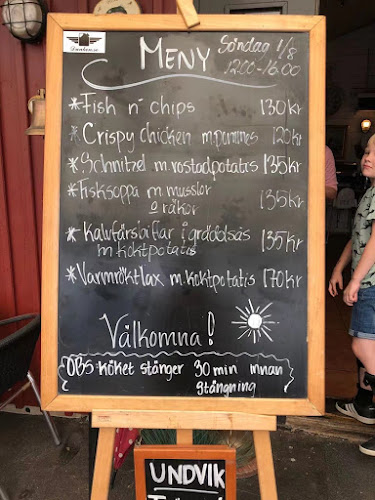 MENY
Söndag 1/8
12.00-16.00
*Fish n' chips 130 kr
*Crispy chicken m.pommes 120 kr
*Schnitzel m. rostad potatis 135 kr
*Fisksoppa m. musslor 135 kr
o räkor
*Kalvfärsbiffar i gräddsås 135 kr
m. koktpotatis
*Varmrökt lax m. koktpotatis 170 kr
Välkomna!
OBS köket stänger 30 min innan
stängning
UNDVIK